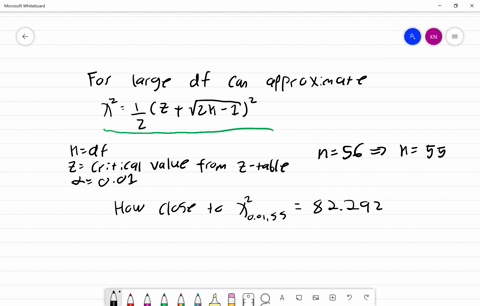 Microsoft Whiteboard
KN
For large df can approximate
χ² = 1/2 (z + √2k-1)²
k=df
z= critical value from z-table
α=0.01
n=56 ⇒ k=55
How close to χ²0.01,55 = 82.292